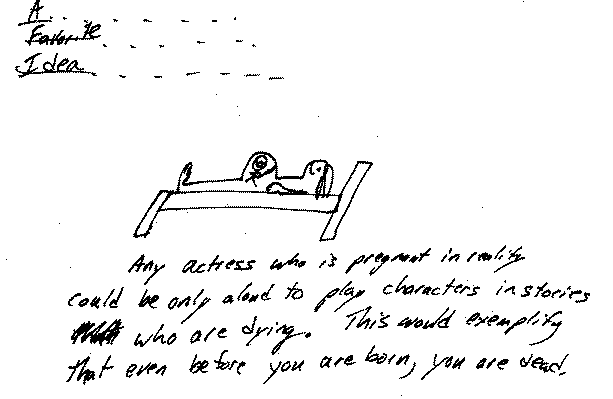 A
Favorite
Idea
Any actress who is pregnant in reality
could be only aloud to play characters in stories
who are dying. This would exemplify
that even before you are born, you are dead.